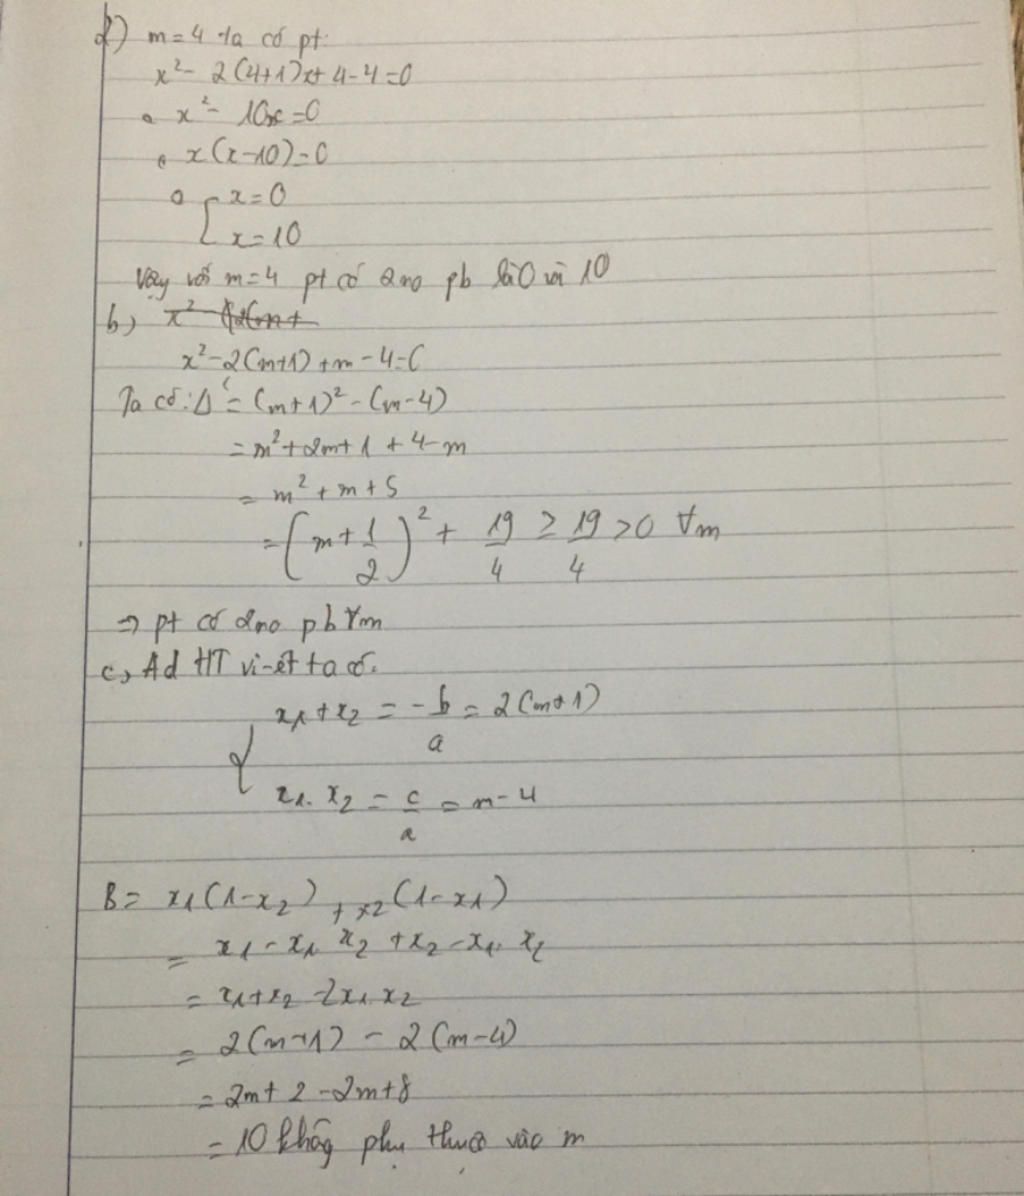 a) m = 4 ta có pt:
x² - 2(4+1)x + 4 - 4 = 0
x² - 10x = 0
x(x-10) = 0
[ x = 0
x = 10
Vậy với m = 4 pt có 2 no pb là 0 và 10
b) x² - (2(m+
x² - 2(m+1) + m - 4 = 0
Ta có: Δ' = (m+1)² - (m-4)
= m² + 2m + 1 + 4 - m
= m² + m + 5
= (m + 1/2)² + 19/4 ≥ 19/4 > 0 ∀m
⇒ pt có 2 no pb ∀m
c, Ad HT vi-ét ta có.
{ x₁ + x₂ = -b/a = 2(m+1)
x₁. x₂ = c/a = m - 4
B = x₁(1-x₂) + x₂(1-x₁)
= x₁ - x₁. x₂ + x₂ - x₁. x₂
= x₁ + x₂ - 2x₁. x₂
= 2(m+1) - 2(m-4)
= 2m + 2 - 2m + 8
= 10 không phụ thuộc vào m